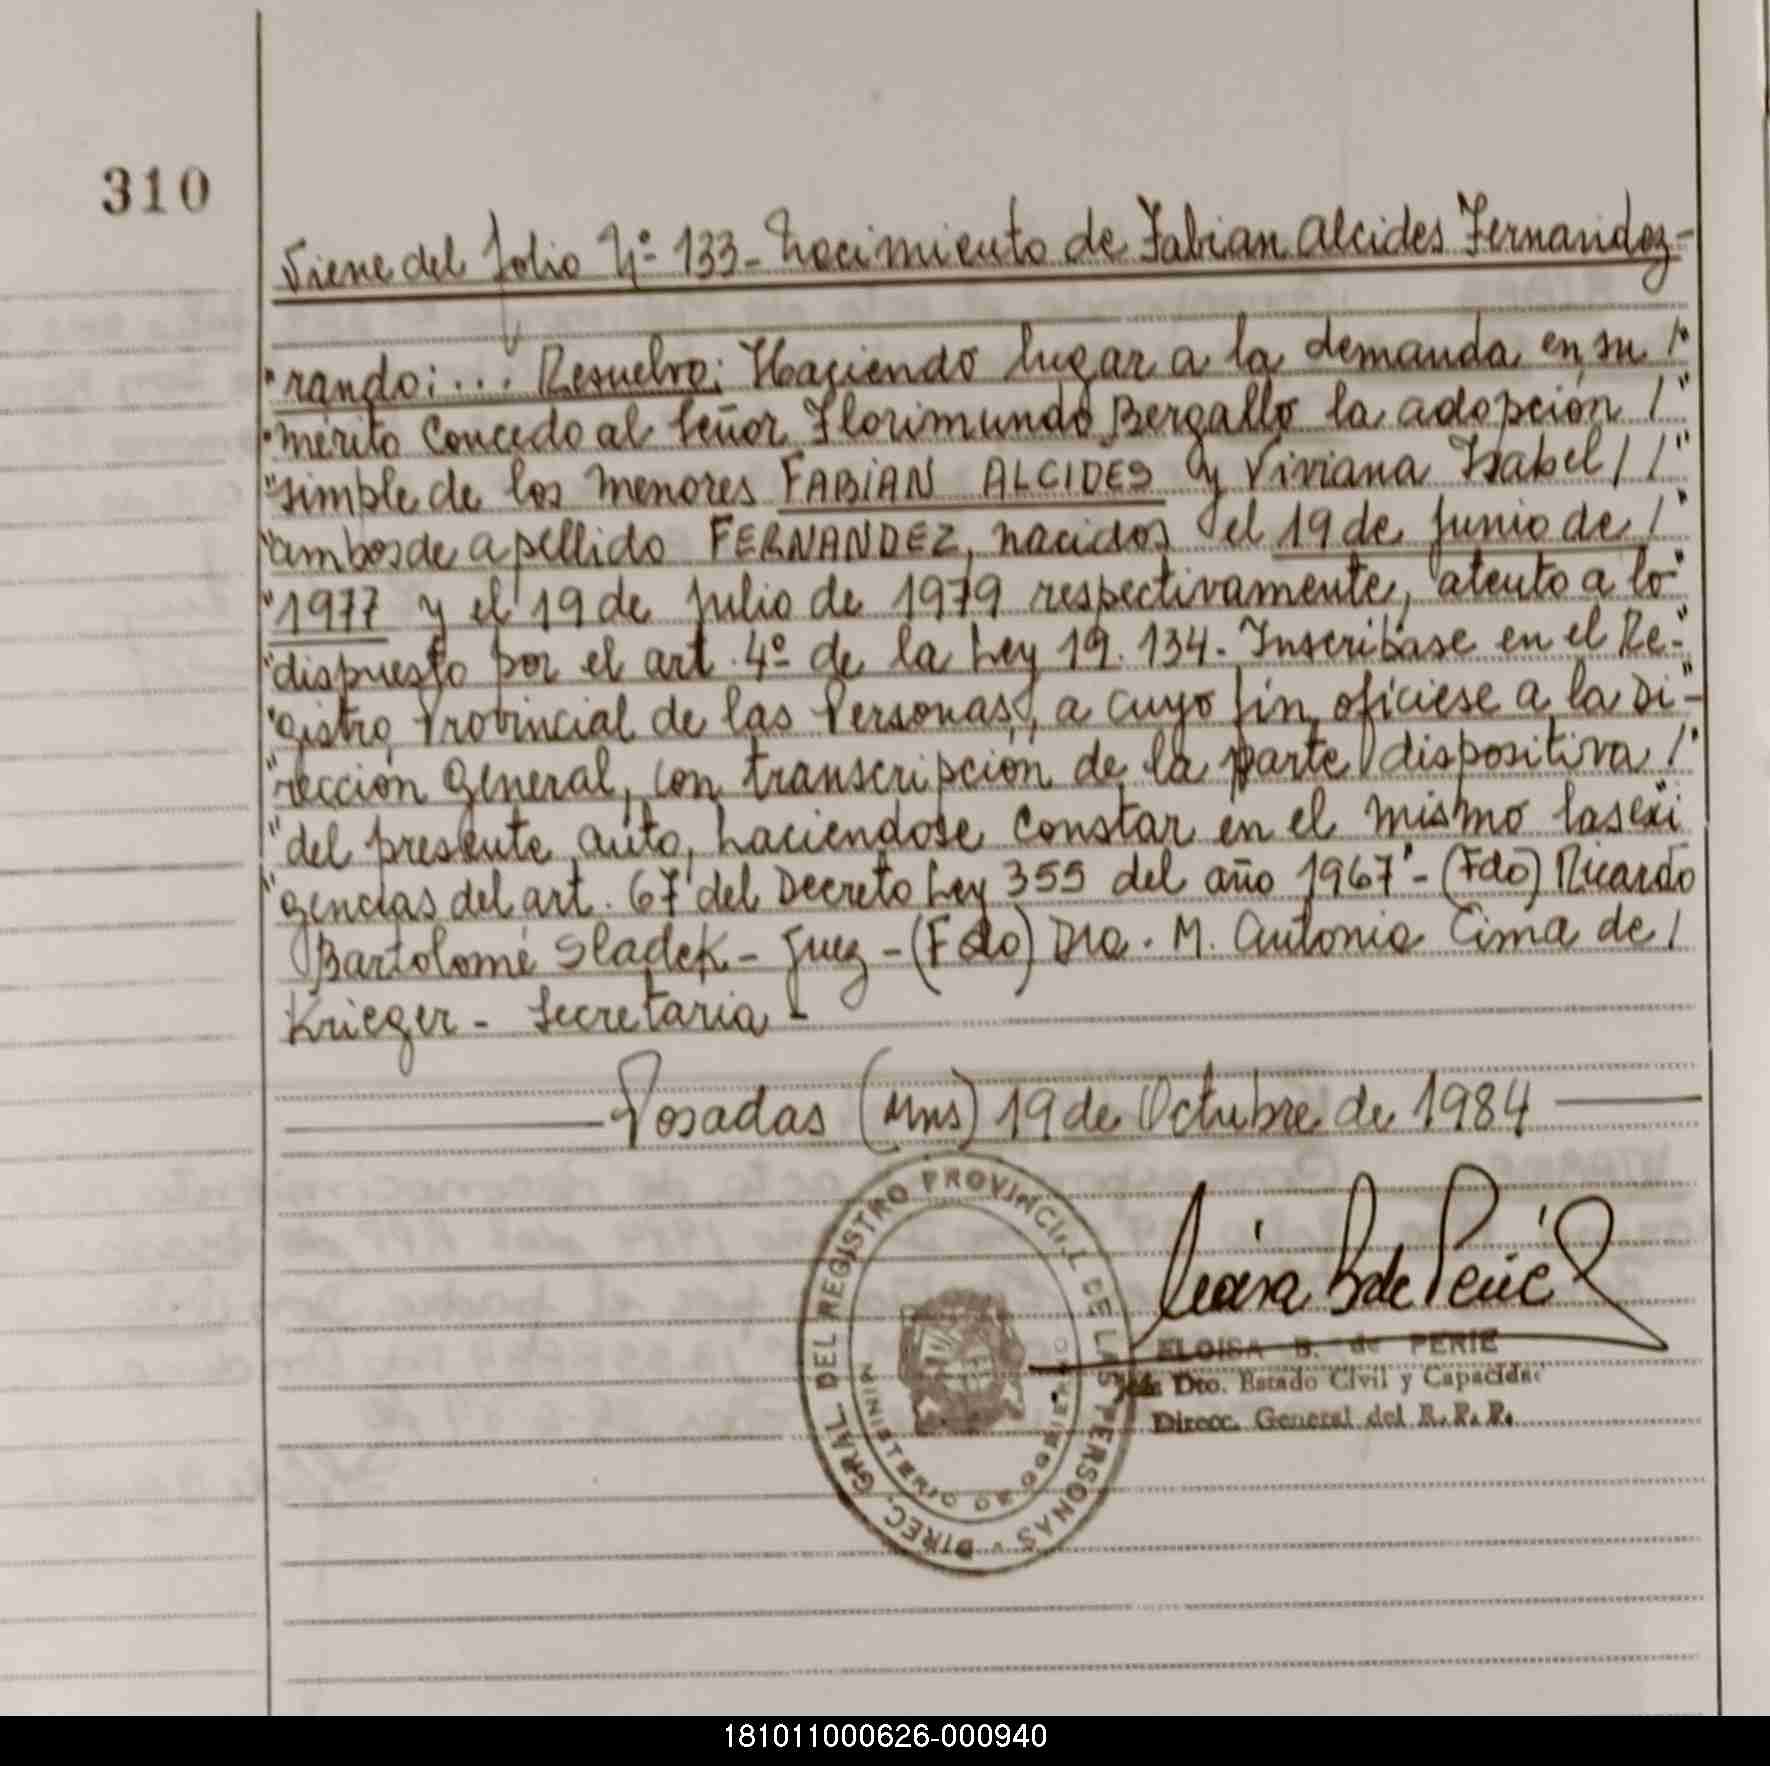 310
Viene del folio Nº 133 - Nacimiento de Fabian Alcides Fernandez -
"rando: ... Resuelvo: Haciendo lugar a la demanda en su /"
"merito concedo al Señor Florimundo Bergallo la adopción /"
"simple de los menores FABIAN ALCIDES y Viviana Isabel //"
"ambos de apellido FERNANDEZ, nacidos el 19 de junio de /"
"1977 y el 19 de julio de 1979 respectivamente, atento a lo"
"dispuesto por el art. 4º de la Ley 19.134 - Inscribase en el Re-"
"gistro Provincial de las Personas, a cuyo fin ofíciese a la Di-"
"rección General, con transcripción de la parte dispositiva /"
"del presente auto, haciendose constar en el mismo las exi"
"gencias del art. 67 del Decreto Ley 355 del año 1967" - (Fdo) Ricardo
Bartolomé Sladek - Juez - (Fdo) Dra. M. Antonia Cima de /
Krieger - Secretaria -
Posadas (Mns) 19 de Octubre de 1984
DIREC. GRAL. DEL REGISTRO PROVINCIAL DE LAS PERSONAS
MINISTERIO DE GOBIERNO
ELOISA B. de PERIE
Jefe Dto. Estado Civil y Capacidad
Direcc. General del R.P.P.
181011000626-000940